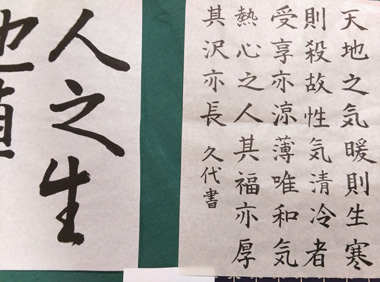 天地之気暖則生寒
則殺故性気清冷者
受享亦涼薄唯和気
熱心之人其福亦厚
其沢亦長 久代書
人之生
也直